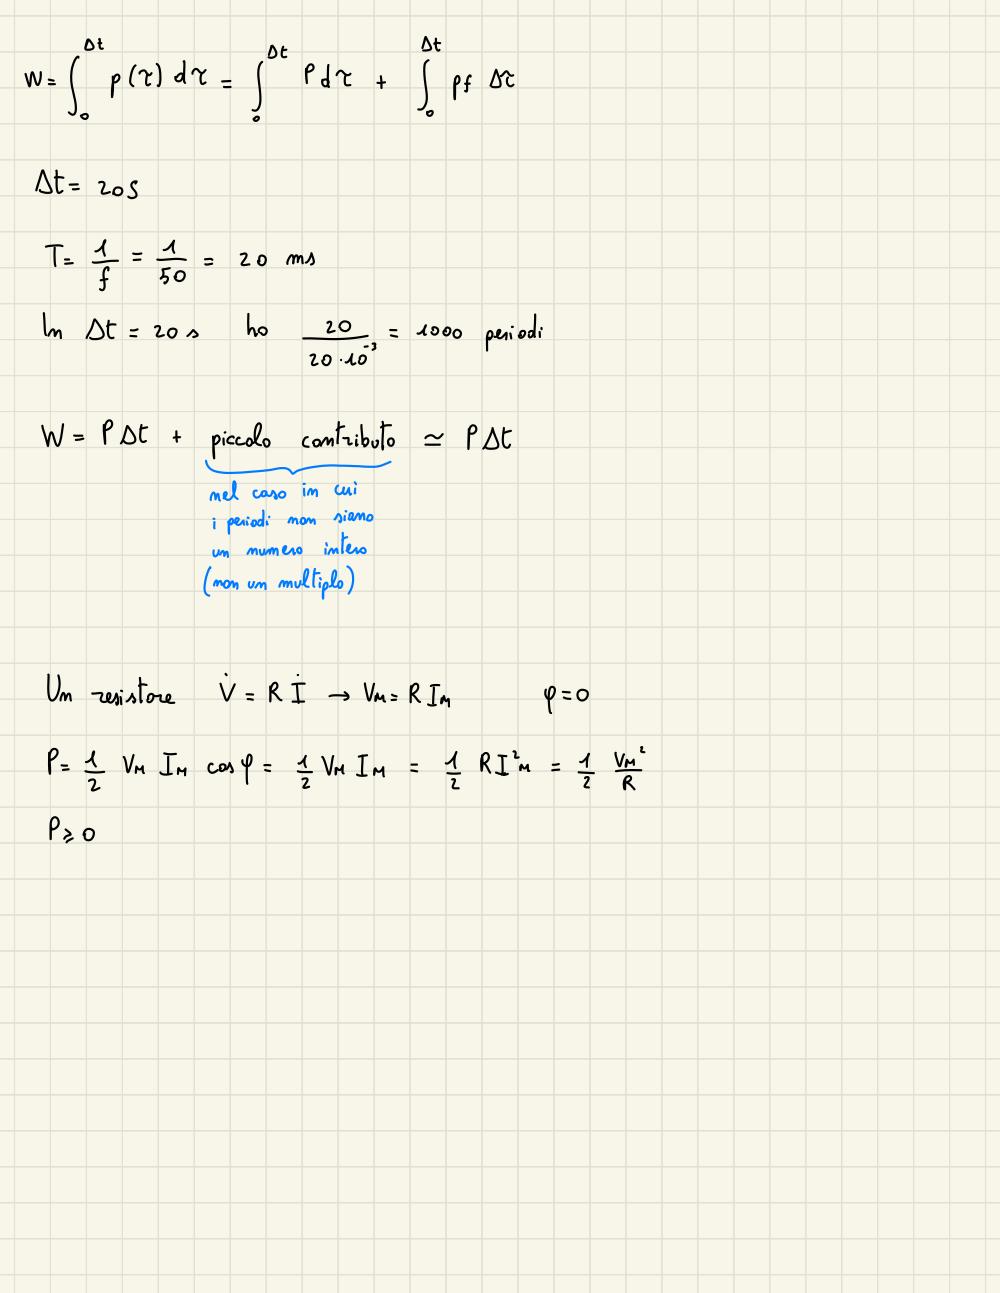 W = ∫₀^Δt p(τ) dτ = ∫₀^Δt P dτ + ∫₀^Δt pf Δτ
Δt = 20 S
T = 1/f = 1/50 = 20 ms
In Δt = 20 s ho 20/(20·10⁻³) = 1000 periodi
W = P Δt + piccolo contributo ≃ P Δt
nel caso in cui
i periodi non siano
un numero intero
(non un multiplo)
Un resistore V̇ = R İ → V_M = R I_M φ = 0
P = 1/2 V_M I_M cos φ = 1/2 V_M I_M = 1/2 R I²_M = 1/2 V_M²/R
P ⩾ 0